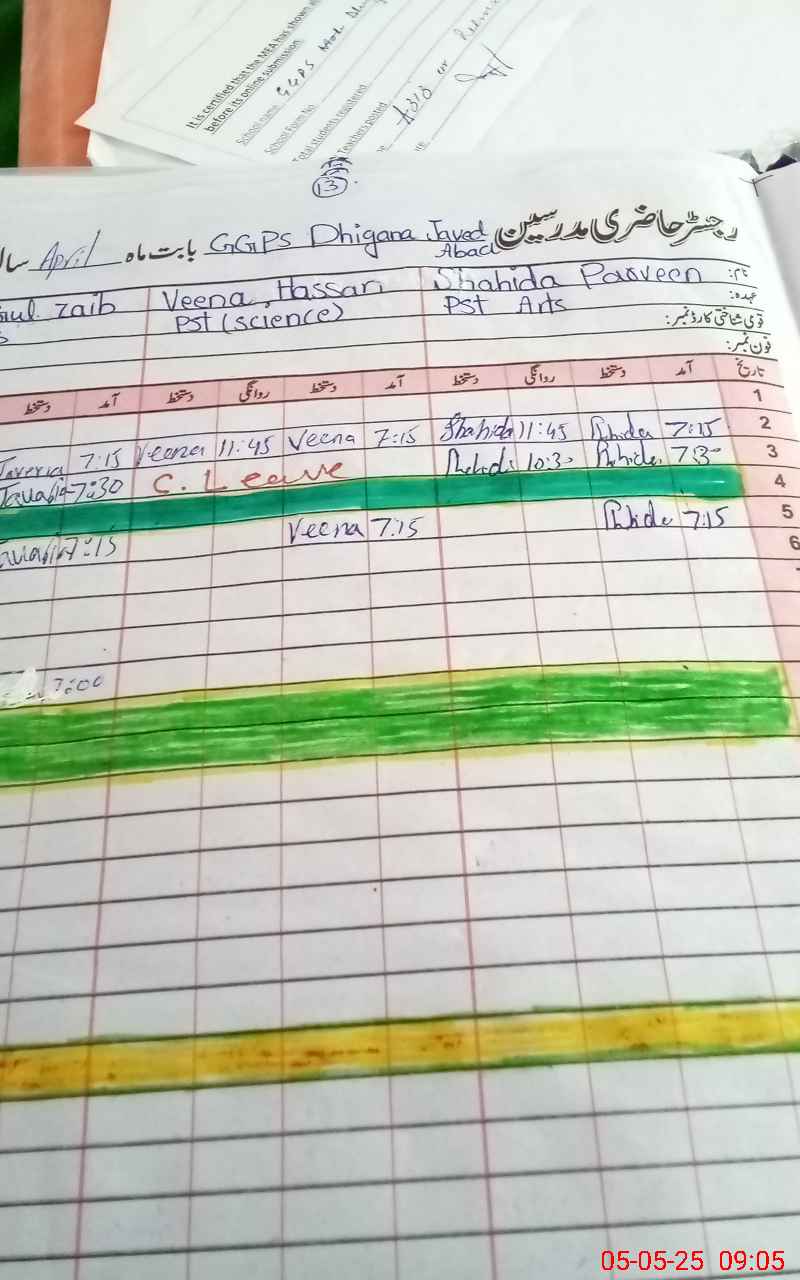 It is certified that the MEA has shown
before its online submission
School name GGPS
School Form No
Total students registered
Teachers posted
13
رجسٹر حاضری مدرسین GGPS Dhigana Javed Abad بابت ماہ April سال
نام: Shahida Parveen Veena Hassan Gul Zaib
عہدہ: PST Arts PST (science)
قومی شناختی کارڈ نمبر:
فون نمبر:
تاریخ آمد دستخط روانگی دستخط آمد دستخط روانگی دستخط آمد دستخط
1
2 7:15 Shahida 11:45 Shahida 7:15 Veena 11:45 Veena 7:15
3 7:30 10:30 C. Leave 7:30
4
5 7:15 7:15 Veena 7:15
6
7:00
05-05-25 09:05